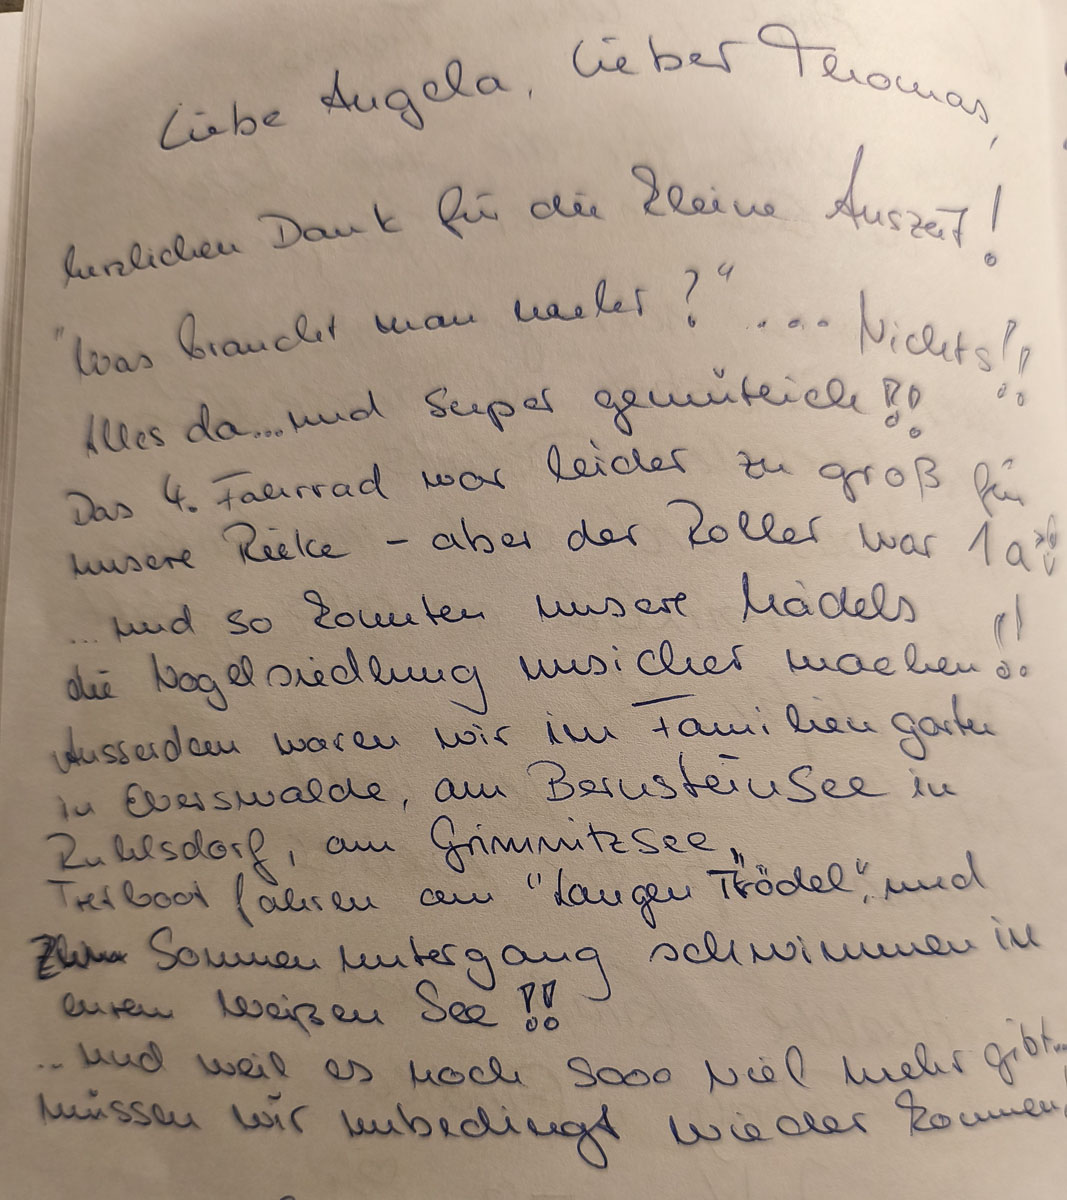 Liebe Angela, lieber Thomas,
herzlichen Dank für die kleine Auszeit!
"Was braucht man mehr?" .... Nichts!!
Alles da...und super gemütlich!!
Das 4. Fahrrad war leider zu groß für
unsere Rieke - aber der Roller war 1a!!
...und so konnten unsere Mädels
die Vogelsiedlung unsicher machen!!
Ausserdem waren wir im Familiengarten
in Eberswalde, am BernsteinSee in
Ruhlsdorf, am Grimnitzsee,
Tretboot fahren am "Langen Trödel", und
zum Sonnenuntergang schwimmen in
eurem Weißen See!!
...und weil es noch sooo viel mehr gibt...
müssen wir unbedingt wieder kommen